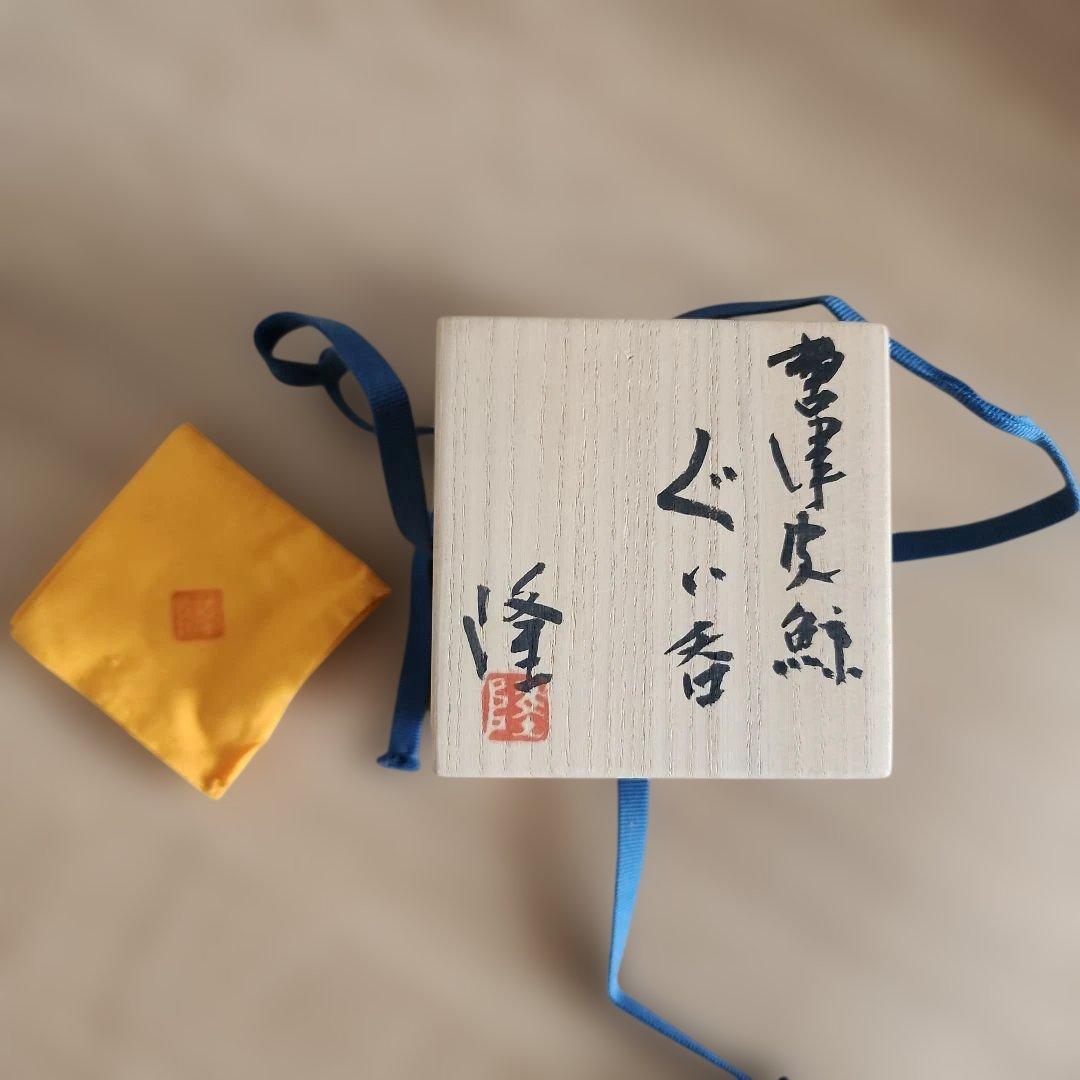 唐津皮鯨
ぐい呑
隆
隆